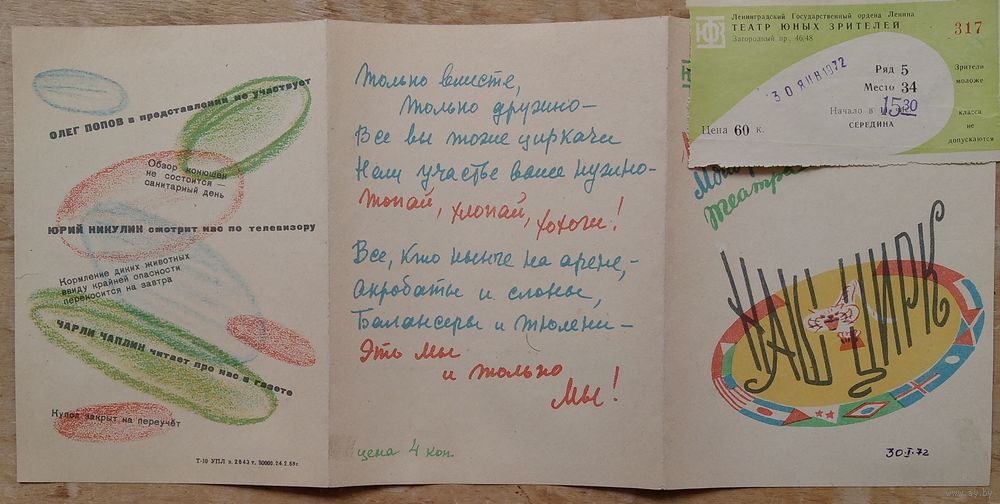 ОЛЕГ ПОПОВ в представлении не участвует
Обзор конюшен
не состоится —
санитарный день
ЮРИЙ НИКУЛИН смотрит нас по телевизору
Кормление диких животных
ввиду крайней опасности
переносится на завтра
ЧАРЛИ ЧАПЛИН читает про нас в газете
Купол закрыт на переучёт
Т-10 УПЛ з. 2643 т. 50000. 24.2.69г.
Только вместе,
Только дружно —
Все вы тоже циркачи
Нам участье ваше нужно —
Топай, хлопай, хохочи!
Все, кто нынче на арене, —
Акробаты и слоны,
Балансеры и тюлени —
Это мы
и только
Мы!
цена 4 коп.
Ленинградский Государственный ордена Ленина
ТЕАТР ЮНЫХ ЗРИТЕЛЕЙ
Загородный пр., 46/48
317
30 ЯНВ 1972
Ряд 5
Место 34
Начало в
15 30
СЕРЕДИНА
Цена 60 к.
Зрители
моложе
класса
не
допускаются
Театра
НАШ ЦИРК
30 I 72
www.ay.by